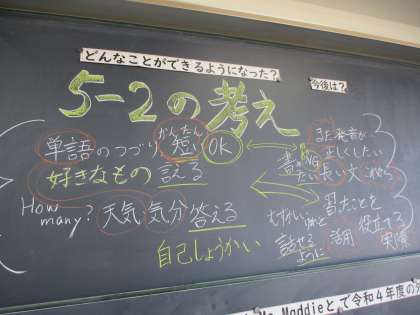 どんなことができるようになった?
今後は?
5-2の考え
かんたん
単語のつづり 短い OK
好きなもの 言える
How many? 天気 気分 答える
自己しょうかい
また発音が
正しくしたい
書き
たい 長い文 これから
習ったことを
話せる
ように
活用 役立てる
実際
Ms. Maddieと
で令和4年度の